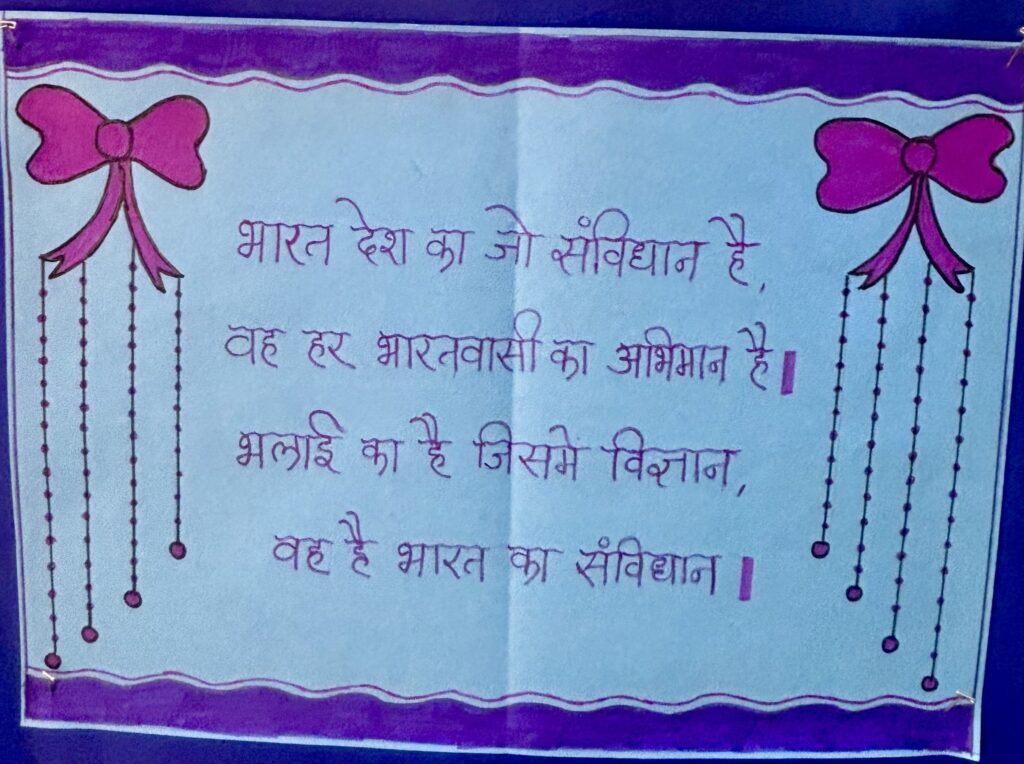 भारत देश का जो संविधान है,
वह हर भारतवासी का अभिमान है।
भलाई का है जिसमे विज्ञान,
वह है भारत का संविधान।